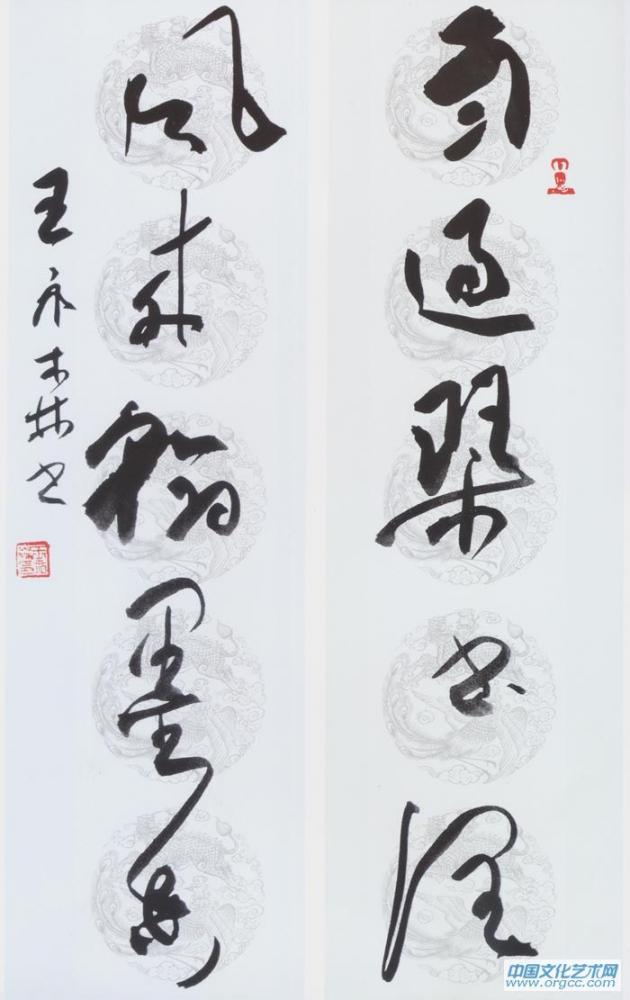 雨過琴書潤
風來翰墨香
王永林書
中国文化艺术网
www.orgcc.com